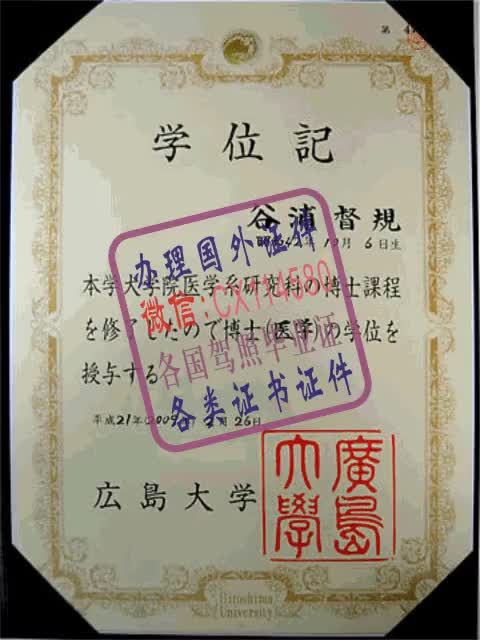 第
学位記
谷浦督規
昭和42年10月6日生
本学大学院医学系研究科の博士課程
を修了したので博士(医学)の学位を
授与する
平成21年(2009年)2月26日
広島大学
廣島
大學
Hiroshima
University
办理国外证件
微信:CX114580
各国驾照毕业证
各类证书证件